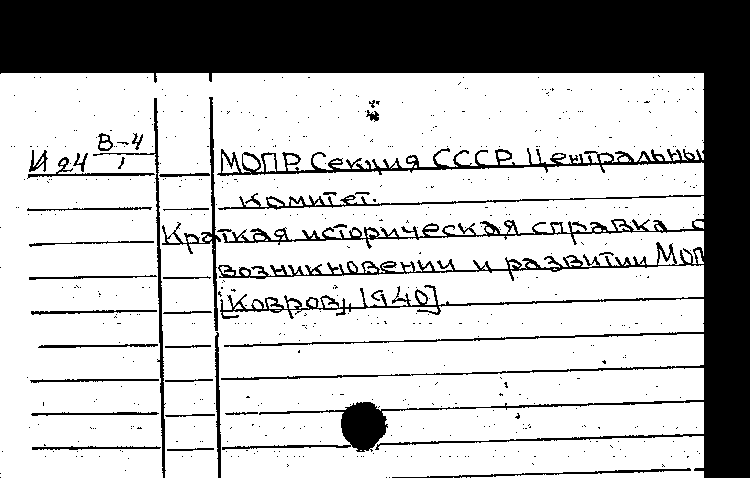 И 24 В-4/1
МОПР. Секция СССР. Центральны
комитет.
Краткая историческая справка о
возникновении и развитии МОП
[Ковров], 1940].